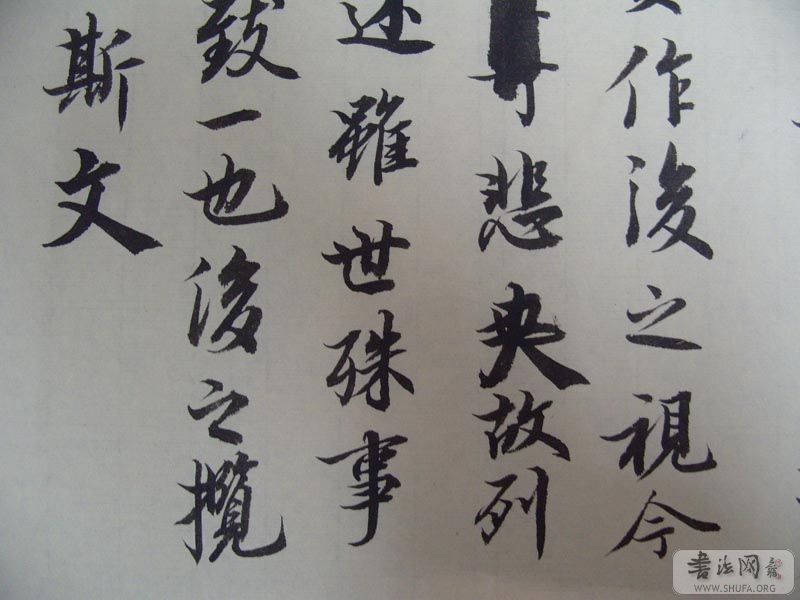 作後之視今
悲夫故列
述雖世殊事
致一也後之攬
斯文
书法网
WWW.SHUFA.ORG